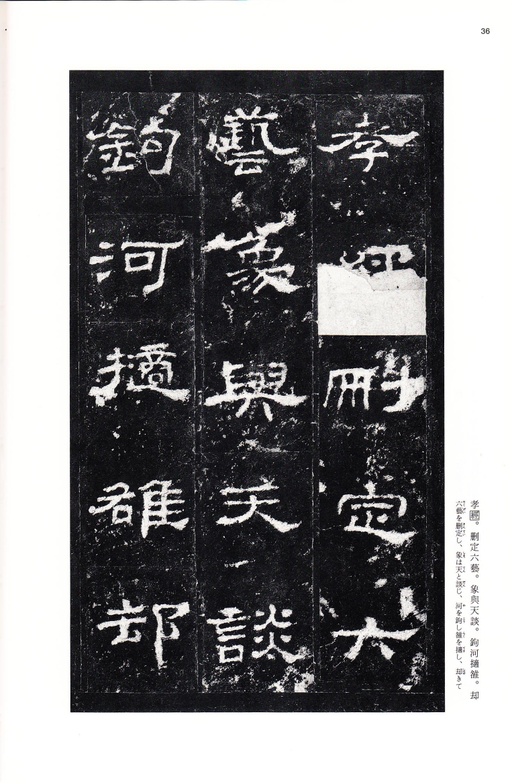 36
孝
刪定六
藝象與天談
鉤河擿雒却
孝。刪定六藝。象與天談。鉤河擿雒。却
六藝を刪定し、象は天と談じ、河を鉤し雒を擿し、却きて